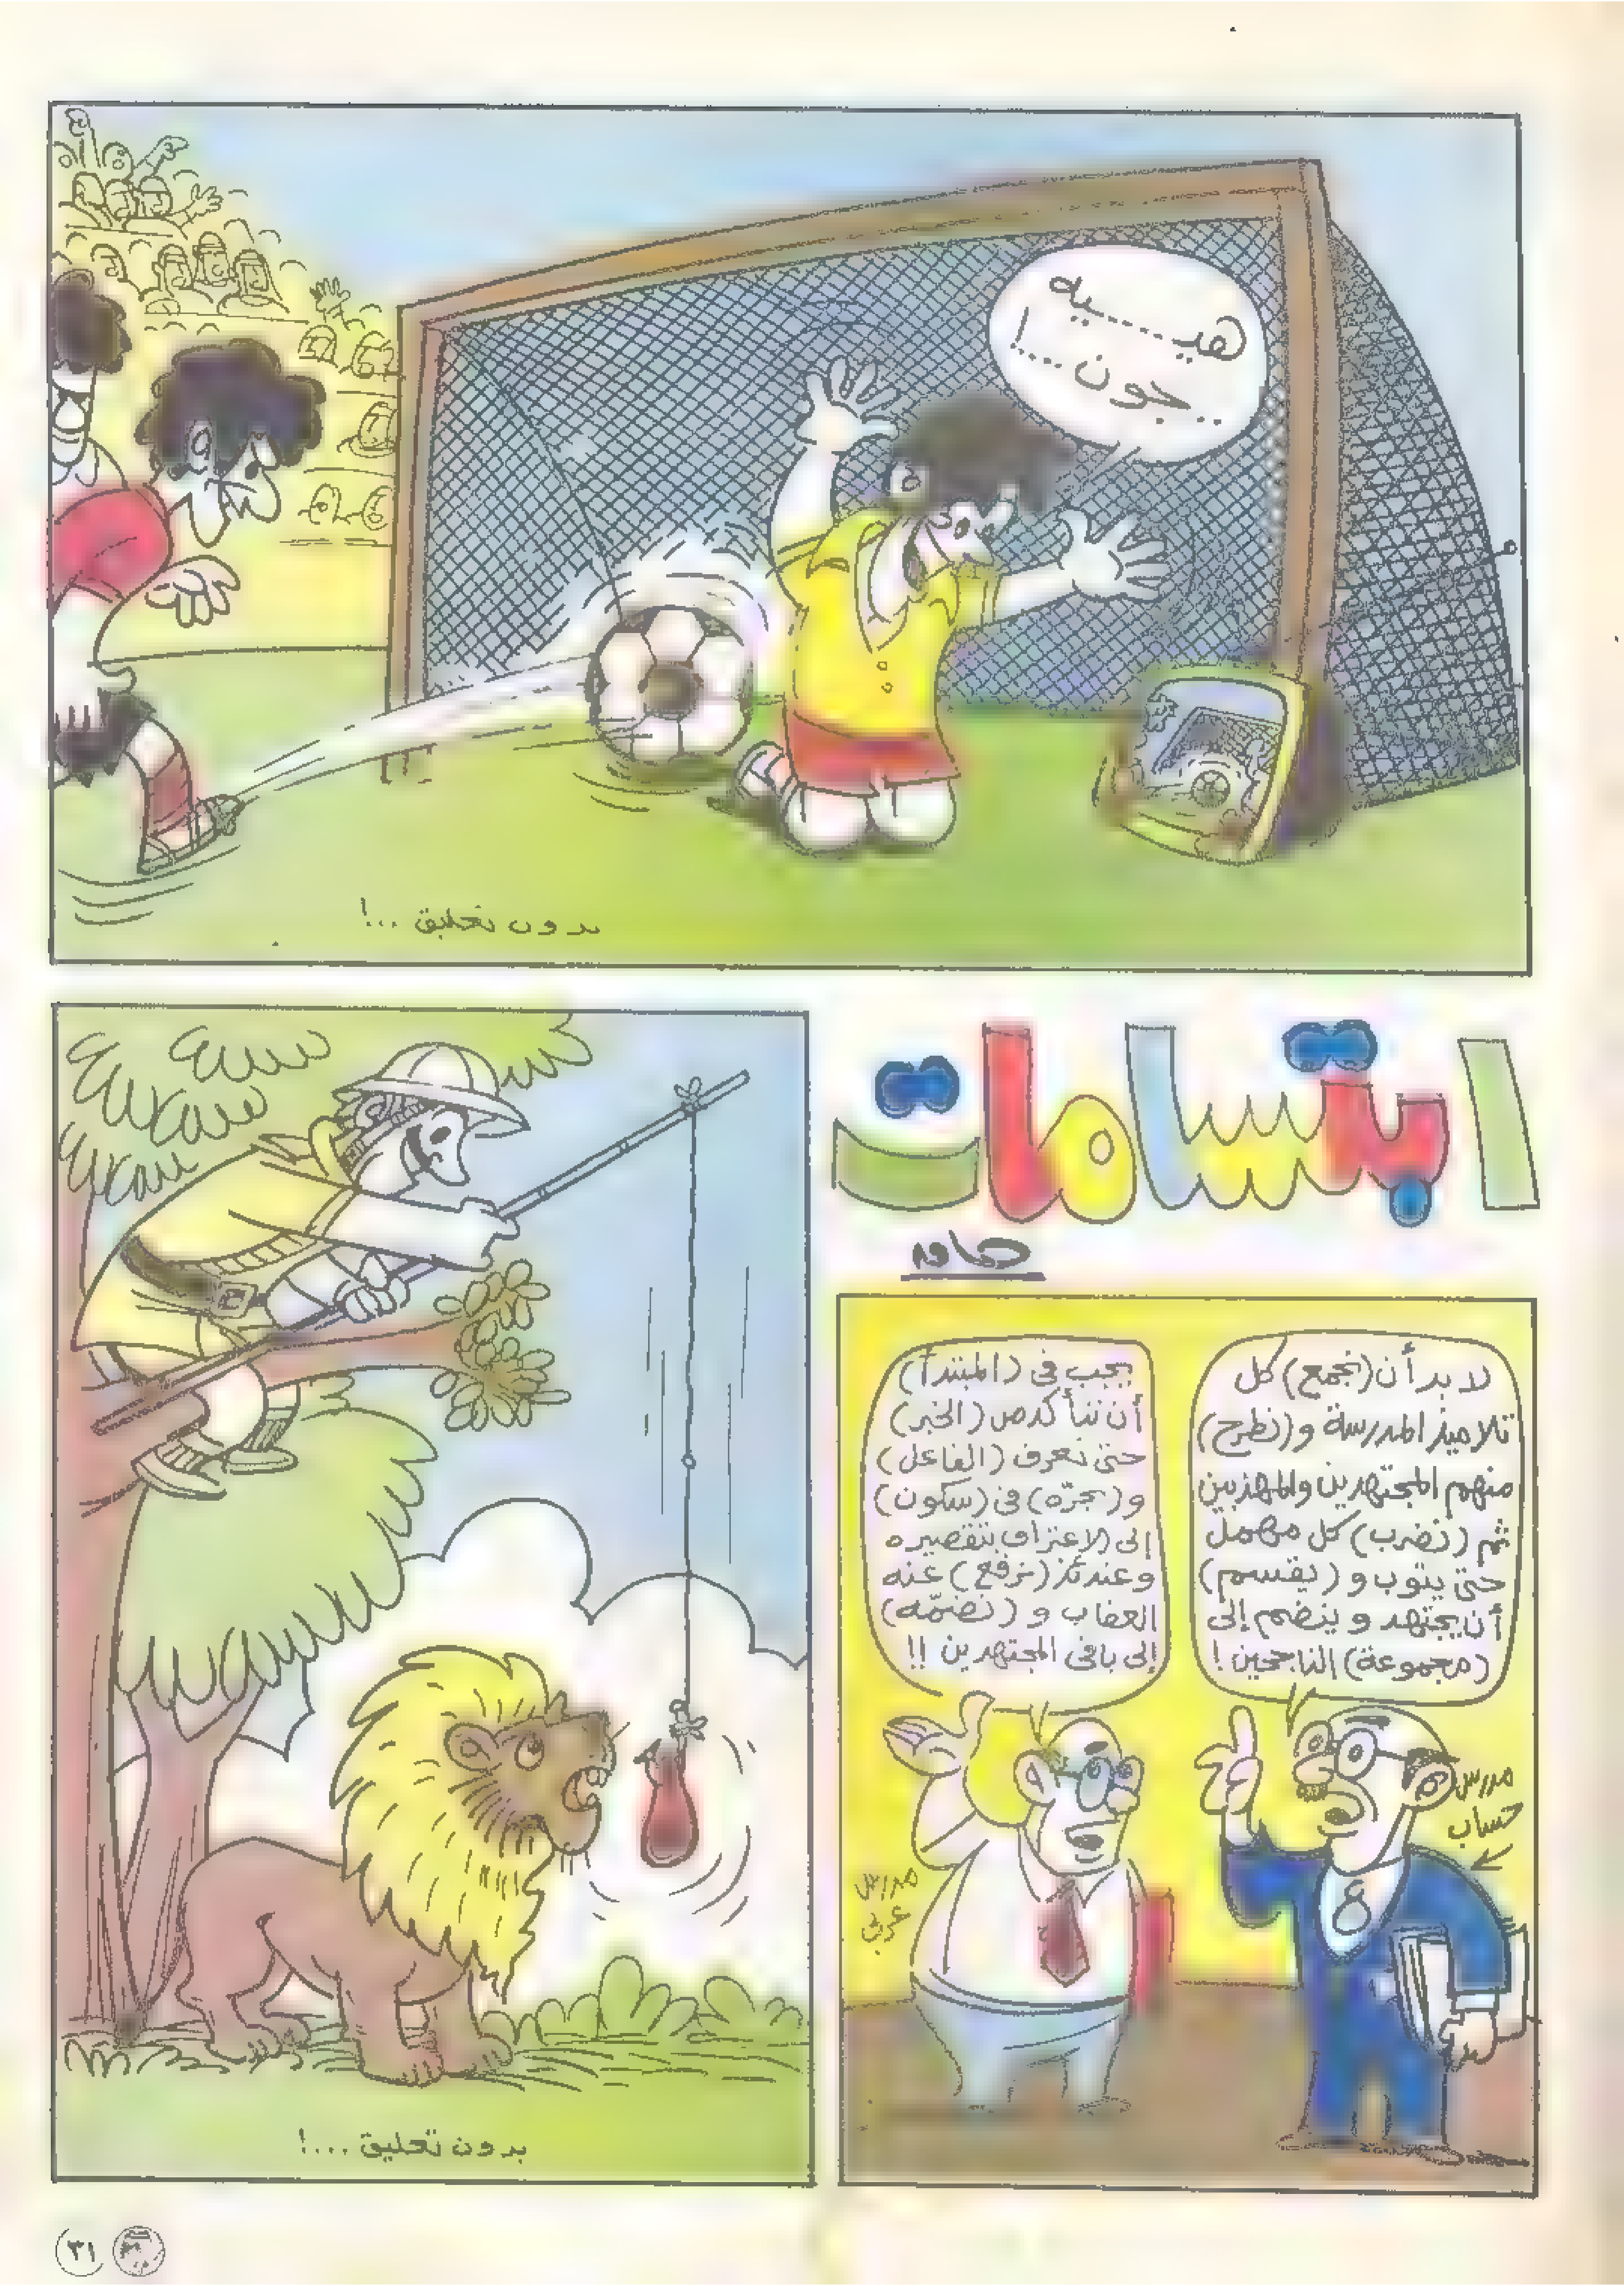 هيـ.....يه
..جون....!
بدون تعليق ...!
ابتسامات
لا بد أن (نجمع) كل
تلاميذ المدرسة و (نطرح)
منهم المجتهدين والمهذبين
ثم (نضرب) كل مهمل
حتى يتوب و (يقسم)
أن يجتهد وينضم إلى
(مجموعة) الناجحين !
مدرس
حساب
يجب في (المبتدأ)
أن نتأكد من (الخبر)
حتى نعرف (الفاعل)
و (نجرّه) في (سكون)
إلى الاعتراف بتقصيره
وعندئذ (نرفع) عنه
العقاب و (نضمّه)
إلى باقي المجتهدين !!
مدرس
عربي
بدون تعليق ...!
٣١